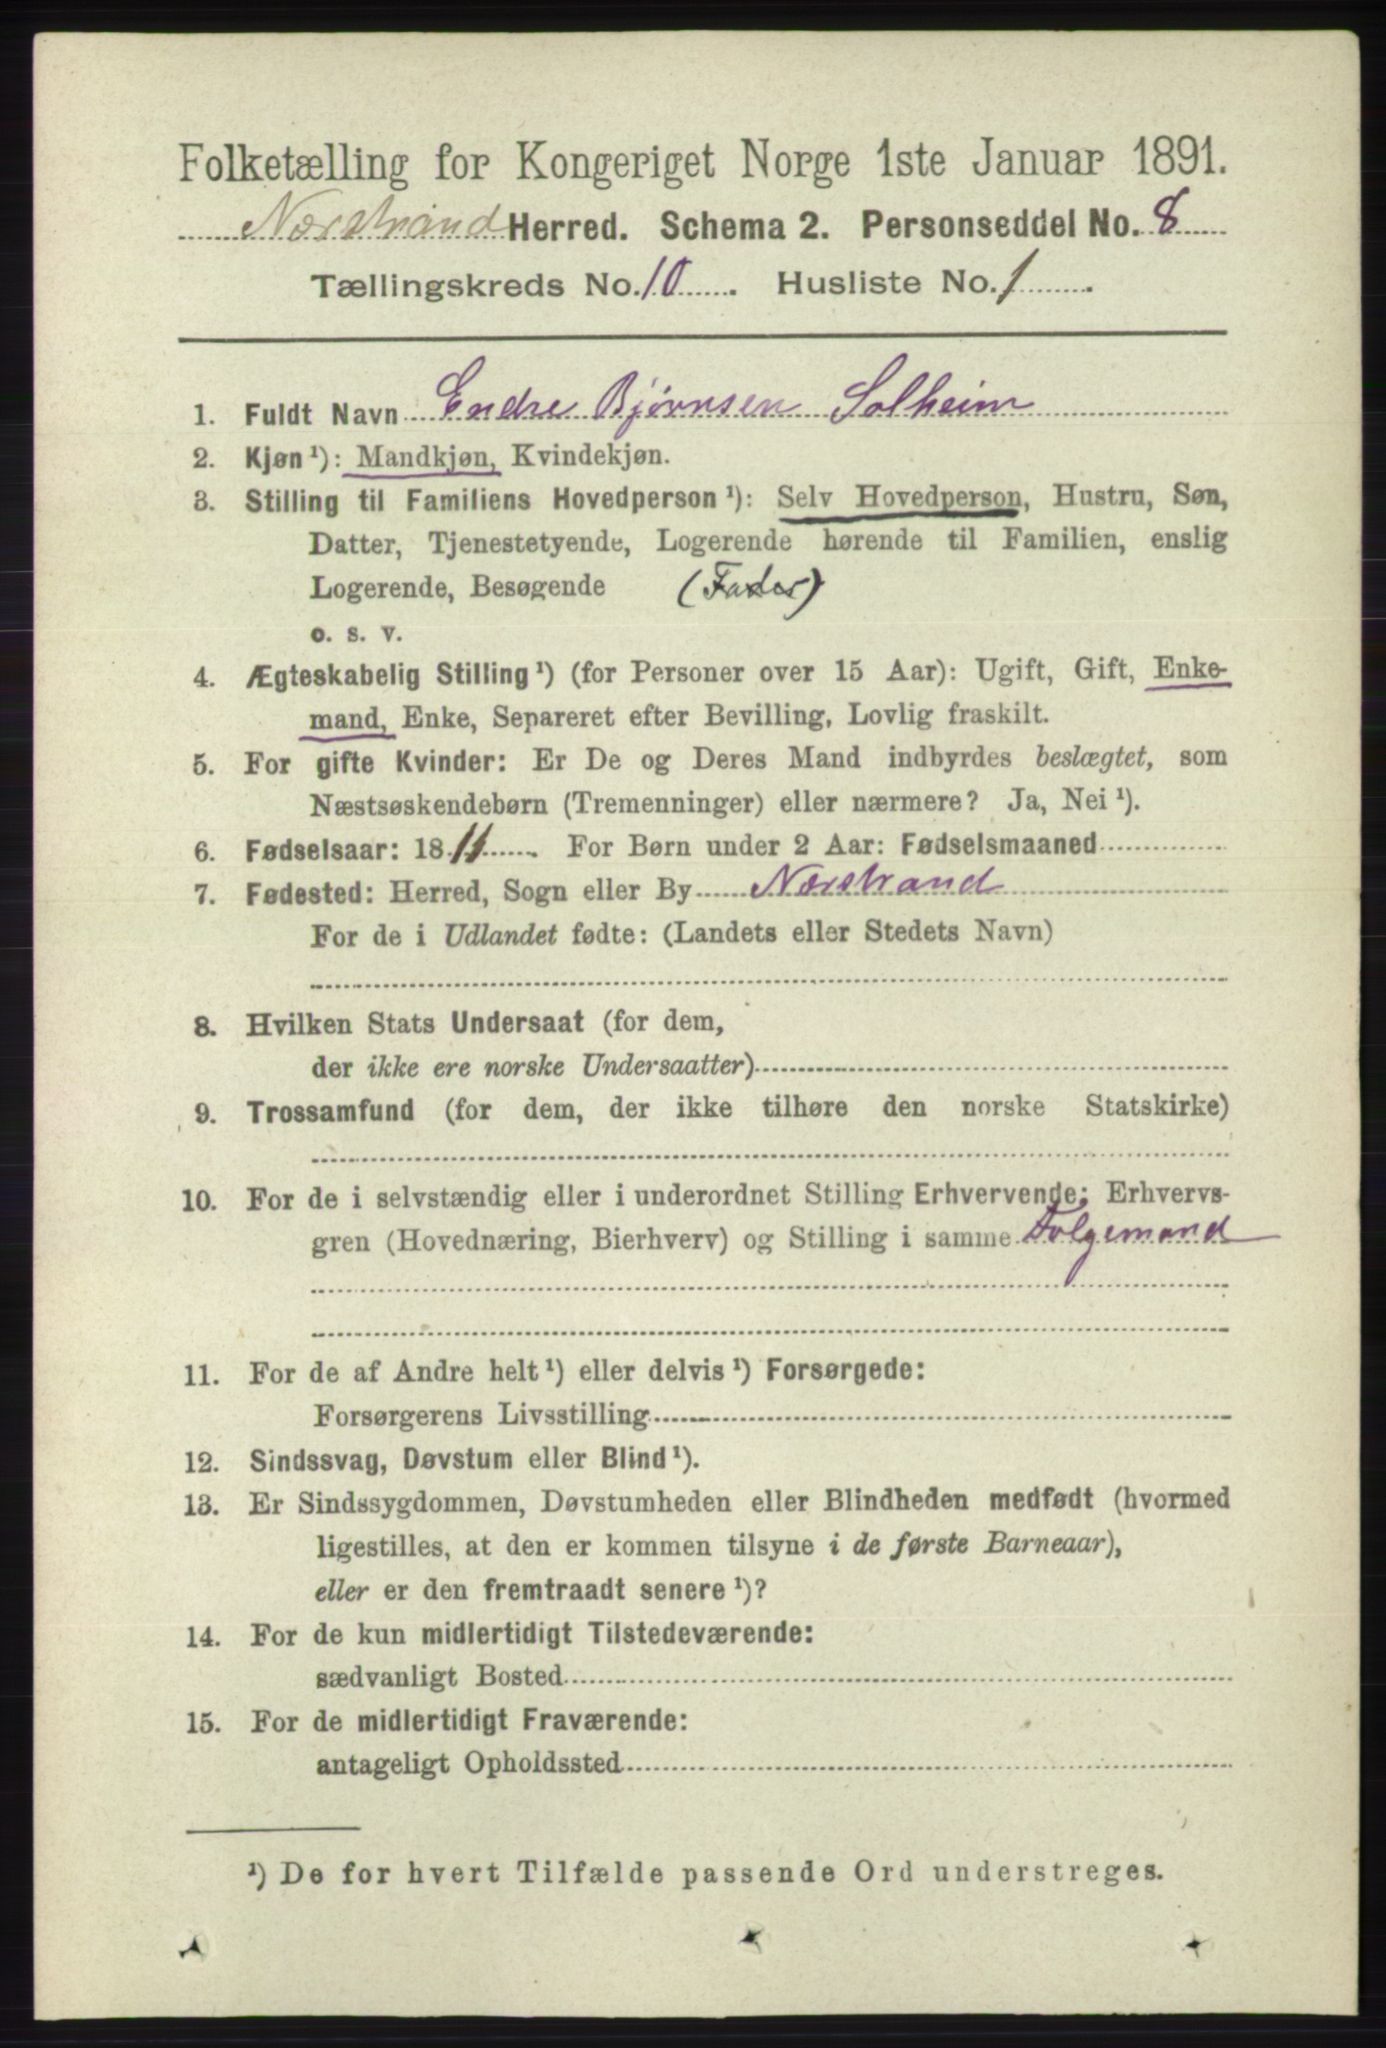 Folketælling for Kongeriget Norge 1ste Januar 1891.
Nærstrand Herred. Schema 2. Personseddel No. 8
Tællingskreds No. 10. Husliste No. 1.
1. Fuldt Navn Endre Bjørnsen Solheim
2. Kjøn ¹): Mandkjøn, Kvindekjøn.
3. Stilling til Familiens Hovedperson ¹): Selv Hovedperson, Hustru, Søn,
Datter, Tjenestetyende, Logerende hørende til Familien, enslig
Logerende, Besøgende (Fader)
o. s. v.
4. Ægteskabelig Stilling ¹) (for Personer over 15 Aar): Ugift, Gift, Enke-
mand, Enke, Separeret efter Bevilling, Lovlig fraskilt.
5. For gifte Kvinder: Er De og Deres Mand indbyrdes beslægtet, som
Næstsøskendebørn (Tremenninger) eller nærmere? Ja, Nei ¹).
6. Fødselsaar: 1811. For Børn under 2 Aar: Fødselsmaaned
7. Fødested: Herred, Sogn eller By Nærstrand
For de i Udlandet fødte: (Landets eller Stedets Navn)
8. Hvilken Stats Undersaat (for dem,
der ikke ere norske Undersaatter)
9. Trossamfund (for dem, der ikke tilhøre den norske Statskirke)
10. For de i selvstændig eller i underordnet Stilling Erhvervende: Erhvervs-
gren (Hovednæring, Bierhverv) og Stilling i samme Folgemand
11. For de af Andre helt ¹) eller delvis ¹) Forsørgede:
Forsørgerens Livsstilling
12. Sindssvag, Døvstum eller Blind ¹).
13. Er Sindssygdommen, Døvstumheden eller Blindheden medfødt (hvormed
ligestilles, at den er kommen tilsyne i de første Barneaar),
eller er den fremtraadt senere ¹)?
14. For de kun midlertidigt Tilstedeværende:
sædvanligt Bosted
15. For de midlertidigt Fraværende:
antageligt Opholdssted
¹) De for hvert Tilfælde passende Ord understreges.